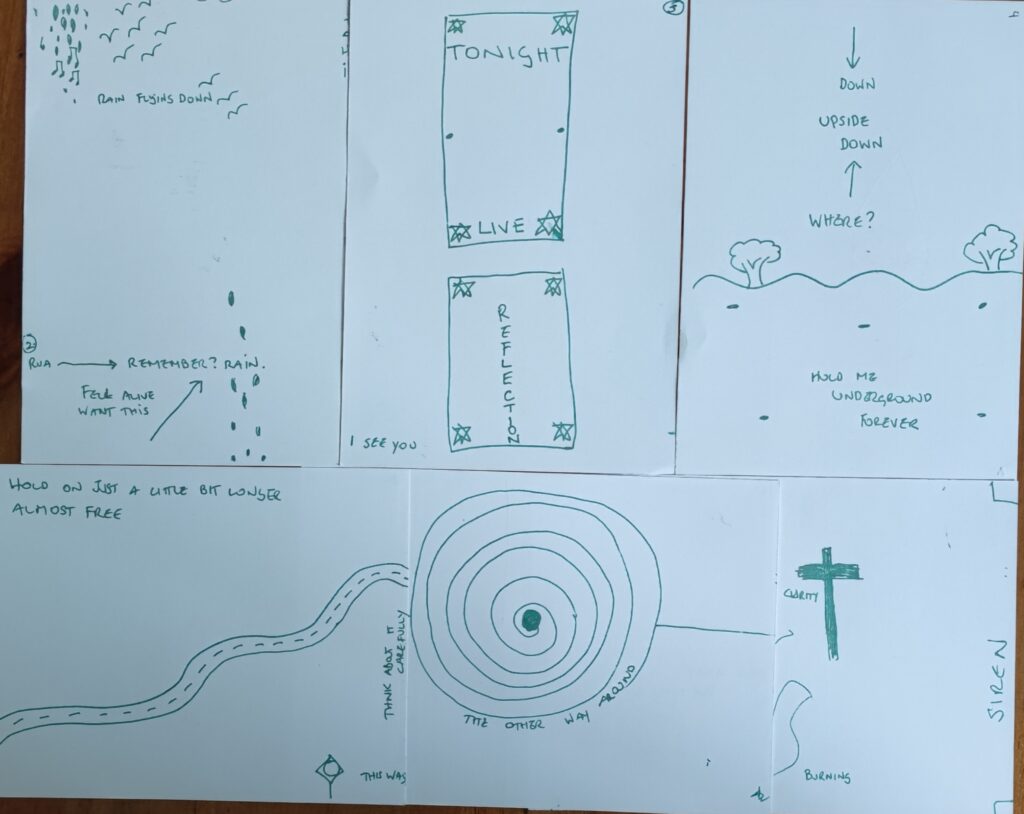 RAIN FLYING DOWN
2
RUA → REMEMBER? RAIN.
FEEL ALIVE
WANT THIS
3
TONIGHT
LIVE
REFLECTION
I SEE YOU
DOWN
UPSIDE
DOWN
WHERE?
HOLD ME
UNDERGROUND
FOREVER
HOLD ON JUST A LITTLE BIT LONGER
ALMOST FREE
THINK ABOUT IT
CAREFULLY
THIS WAS
THE OTHER WAY AROUND
CLARITY
BURNING
SIREN